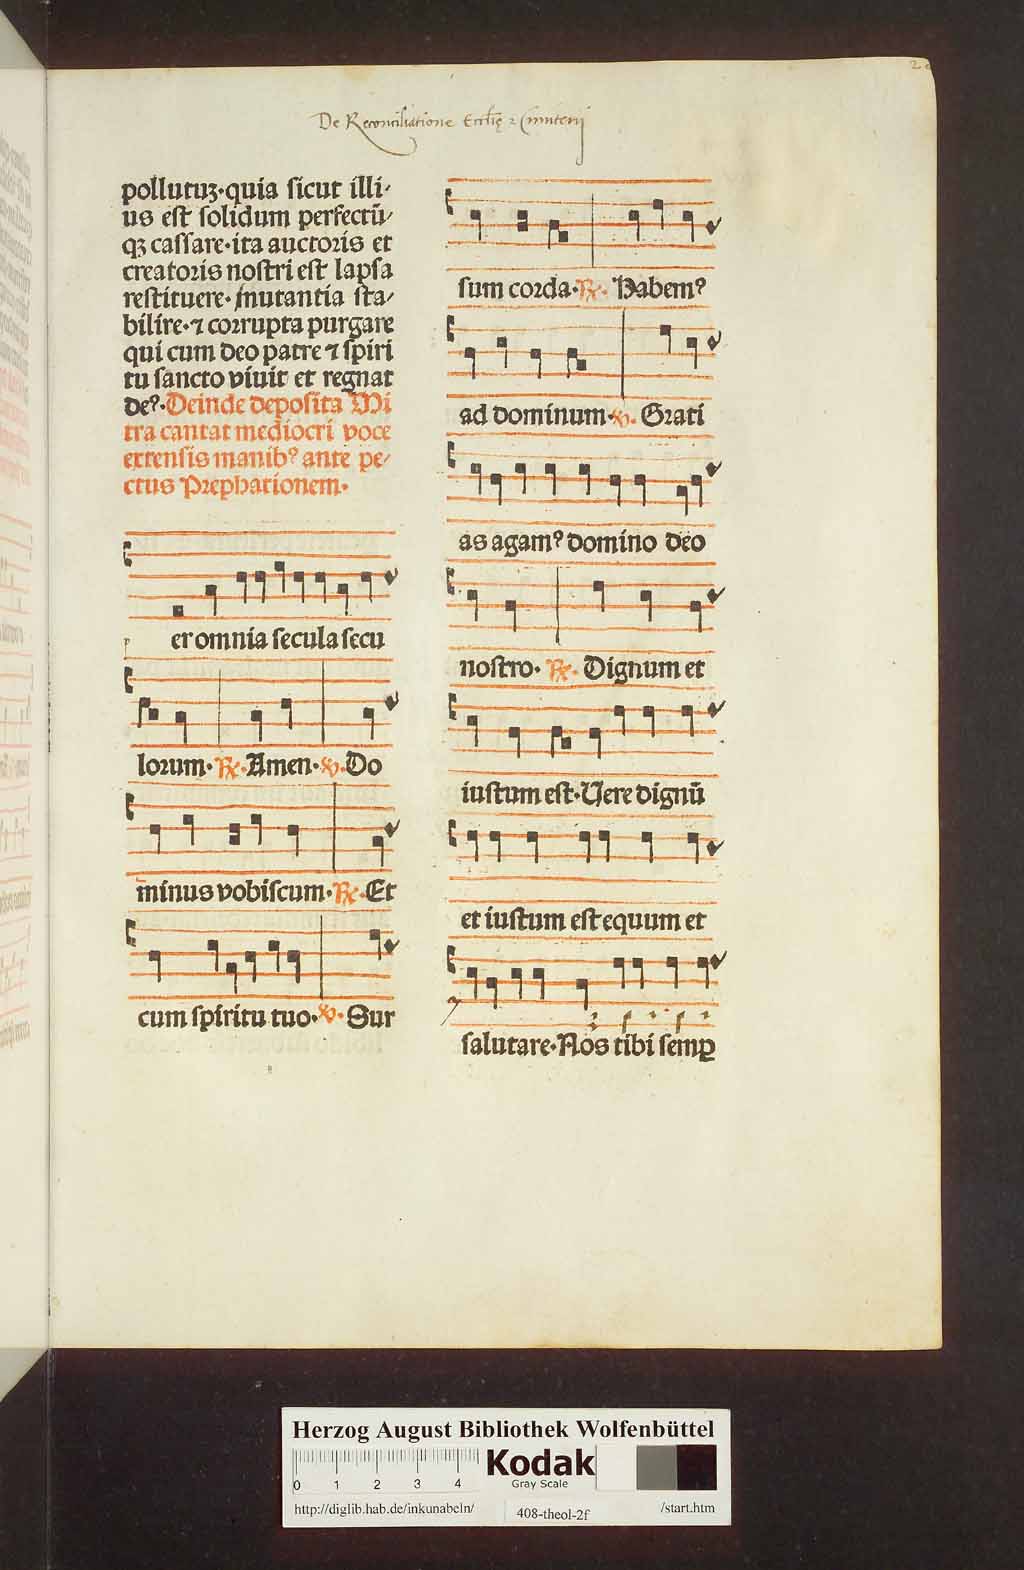 De Reconciliatione Eccľię ⁊ Cimiterij
pollutuꝫ·quia sicut illi⸗
us est solidum perfectū⸗
qꝫ cassare·ita auctoris et
creatoris nostri est lapsa
restituere·mutantia sta⸗
bilire·⁊ corrupta purgare
qui cum deo patre ⁊ spiri
tu sancto viuit et regnat
deꝰ·Deinde deposita Mi
tra cantat mediocri voce
extensis manibꝰ ante pe⸗
ctus Prephationem·
p er omnia secula secu
lorum·℟·Amen·℣·Do
minus vobiscum·℟·Et
cum spiritu tuo·℣·Sur
sum corda·℟·Habemꝰ
ad dominum·℣·Grati
as agamꝰ domino deo
nostro·℟·Dignum et
iustum est·Uere dignū
et iustum est equum et
salutare·Nos tibi semꝑ
Herzog August Bibliothek Wolfenbüttel
0 1 2 3 4
Kodak
Gray Scale
http://diglib.hab.de/inkunabeln/
408-theol-2f
/start.htm